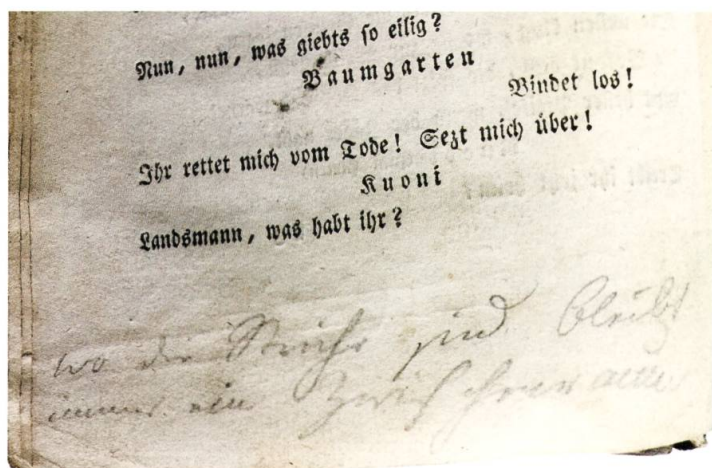 Nun, nun, was giebts so eilig?
Baumgarten
Bindet los!
Ihr rettet mich vom Tode! Sezt mich über!
Kuoni
Landsmann, was habt ihr?
wo die Striche sind bleibt
immer ein Zwischenraum